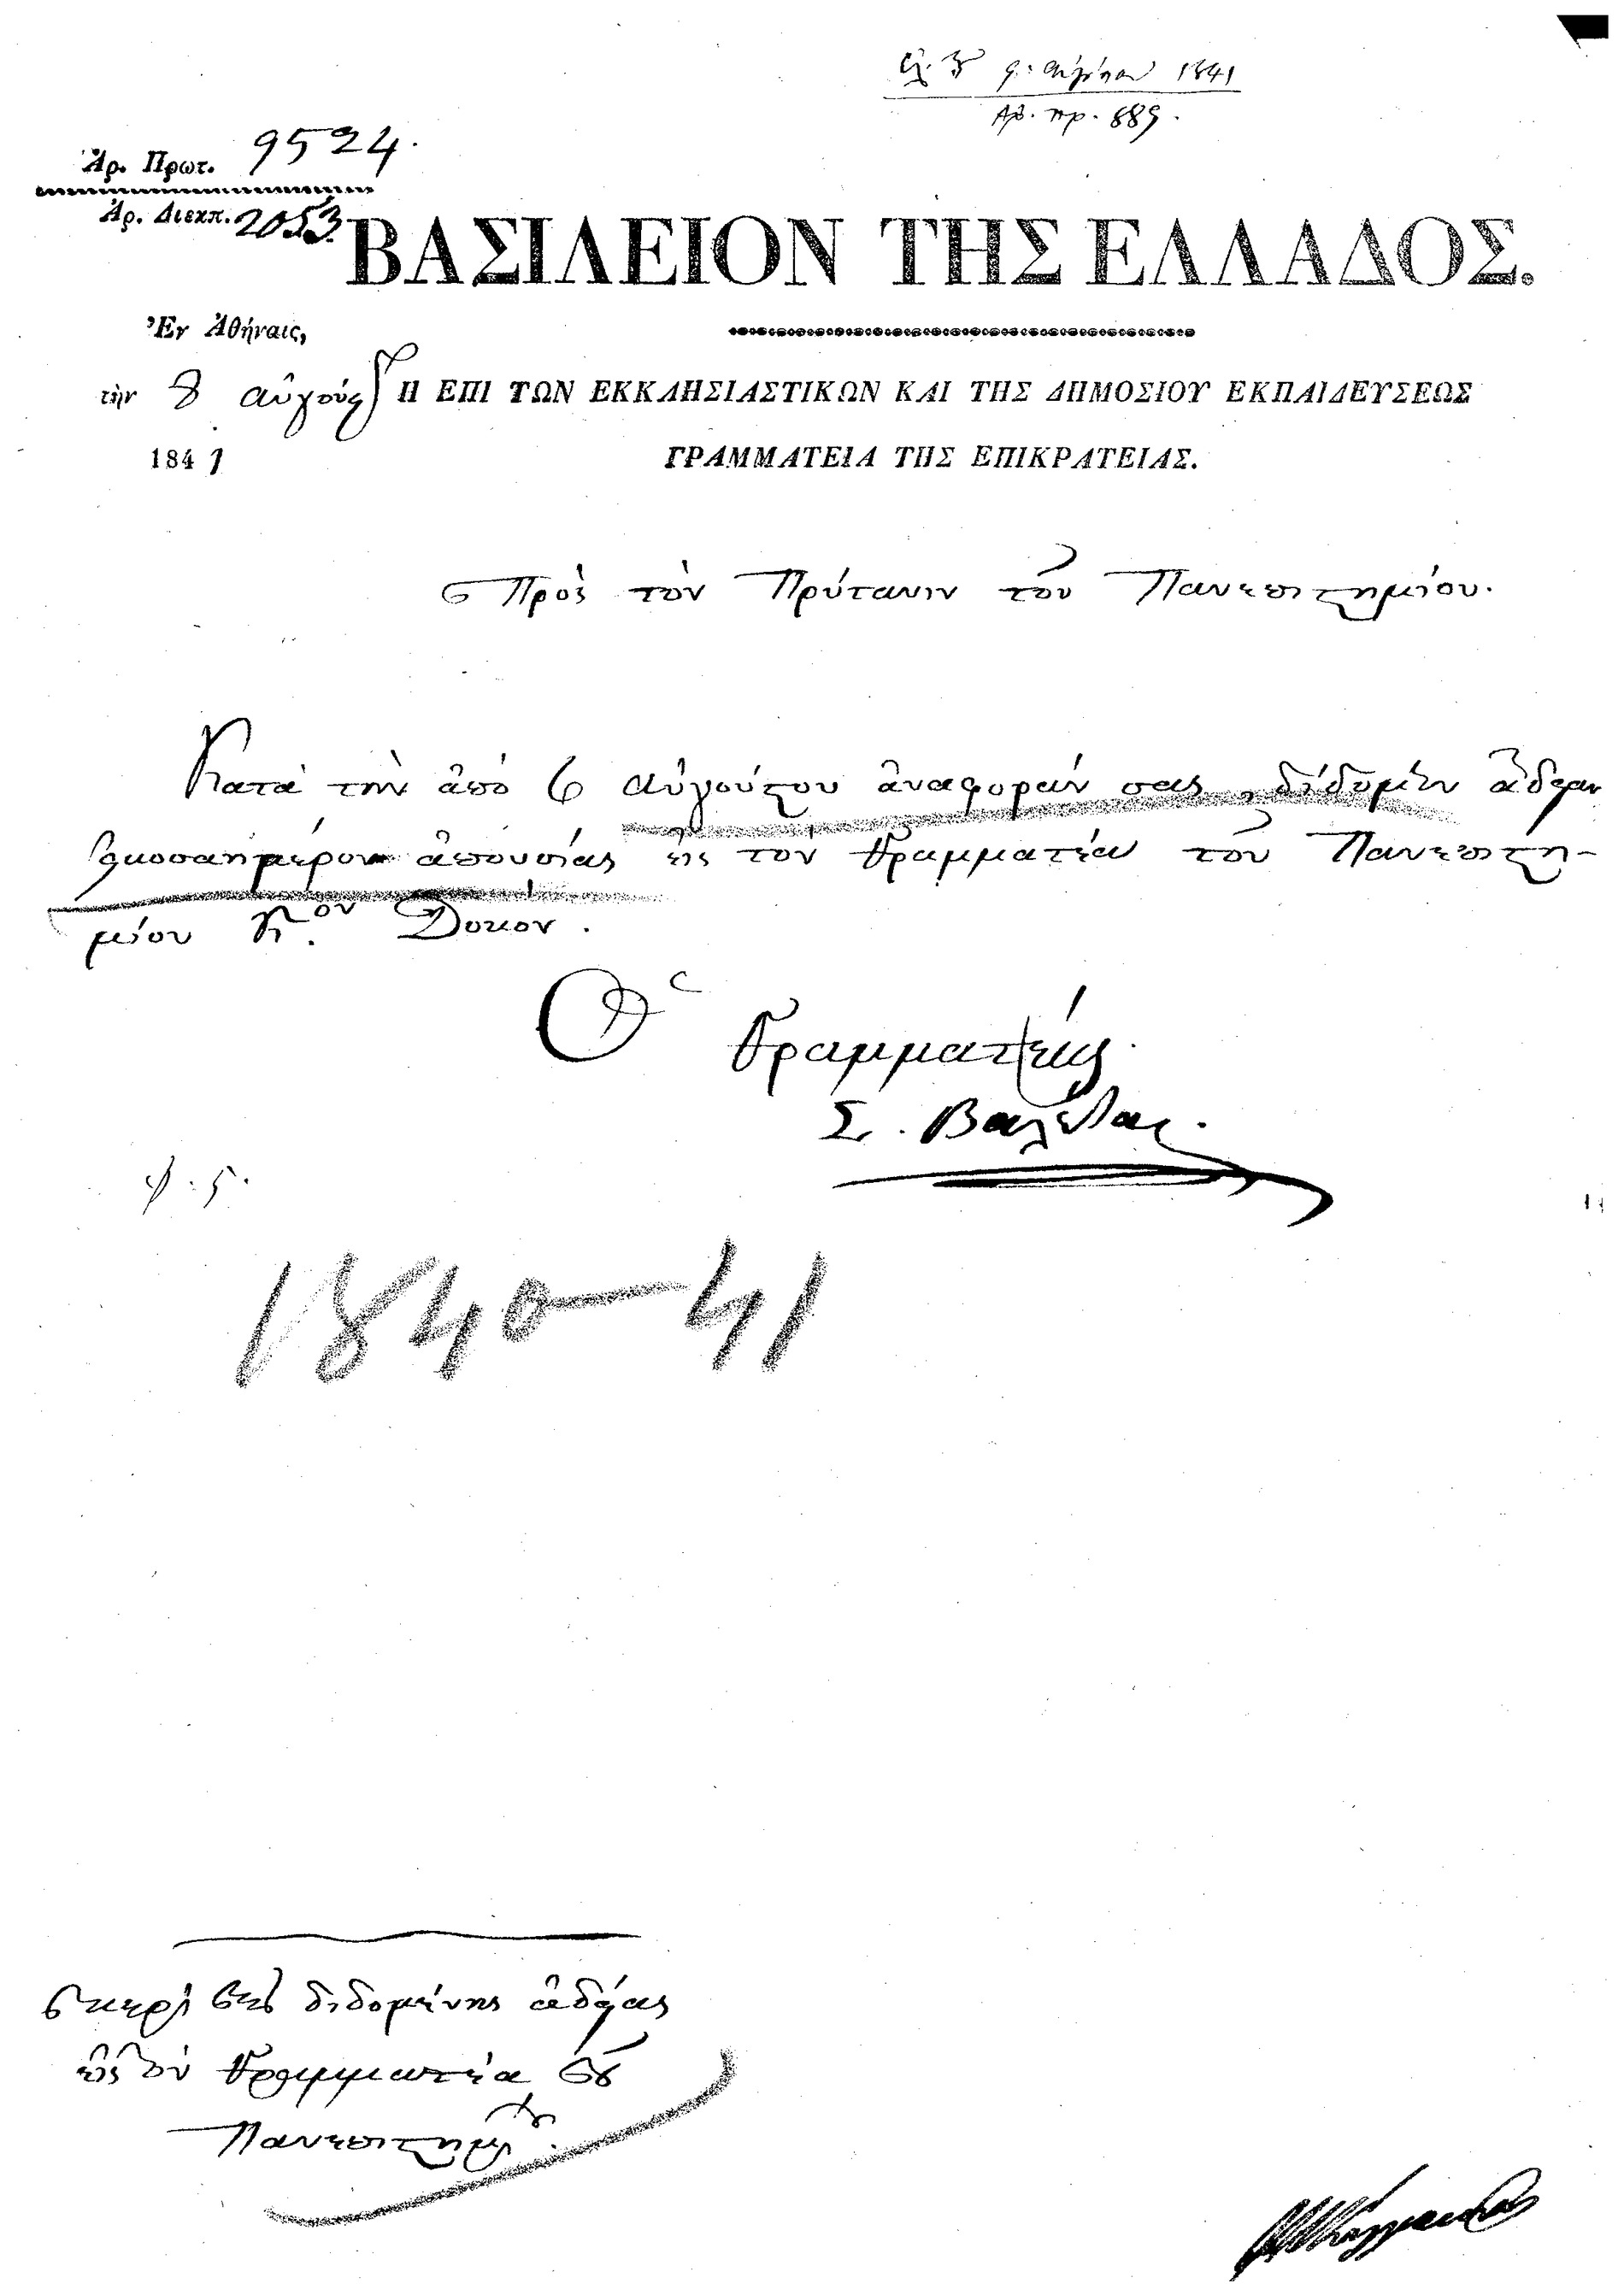 9: Αὐγούστου 1841
Ἀρ. πρ. 889.
Ἀρ. Πρωτ. 9524.
Ἀρ. Διεκπ. 2053.
ΒΑΣΙΛΕΙΟΝ ΤΗΣ ΕΛΛΑΔΟΣ.
Ἐν Ἀθήναις,
τὴν 8 αὐγούς
Η ΕΠΙ ΤΩΝ ΕΚΚΛΗΣΙΑΣΤΙΚΩΝ ΚΑΙ ΤΗΣ ΔΗΜΟΣΙΟΥ ΕΚΠΑΙΔΕΥΣΕΩΣ
1841
ΓΡΑΜΜΑΤΕΙΑ ΤΗΣ ΕΠΙΚΡΑΤΕΙΑΣ.
Πρὸς τὸν Πρύτανιν τοῦ Πανεπιστημίου.
Κατὰ τὴν ἀπὸ 6 αὐγούστου ἀναφοράν σας, δίδομεν ἄδειαν
εἰκοσαημέρου ἀπουσίας εἰς τὸν Γραμματέα τοῦ Πανεπιστη-
μίου Κ.ον Δόκον.
Ὁ Γραμματεὺς
Σ. Βαλέττας.
1840-41
περὶ τῆς διδομένης ἀδείας
εἰς τὸν Γραμματέα τοῦ
Πανεπιστημίου.